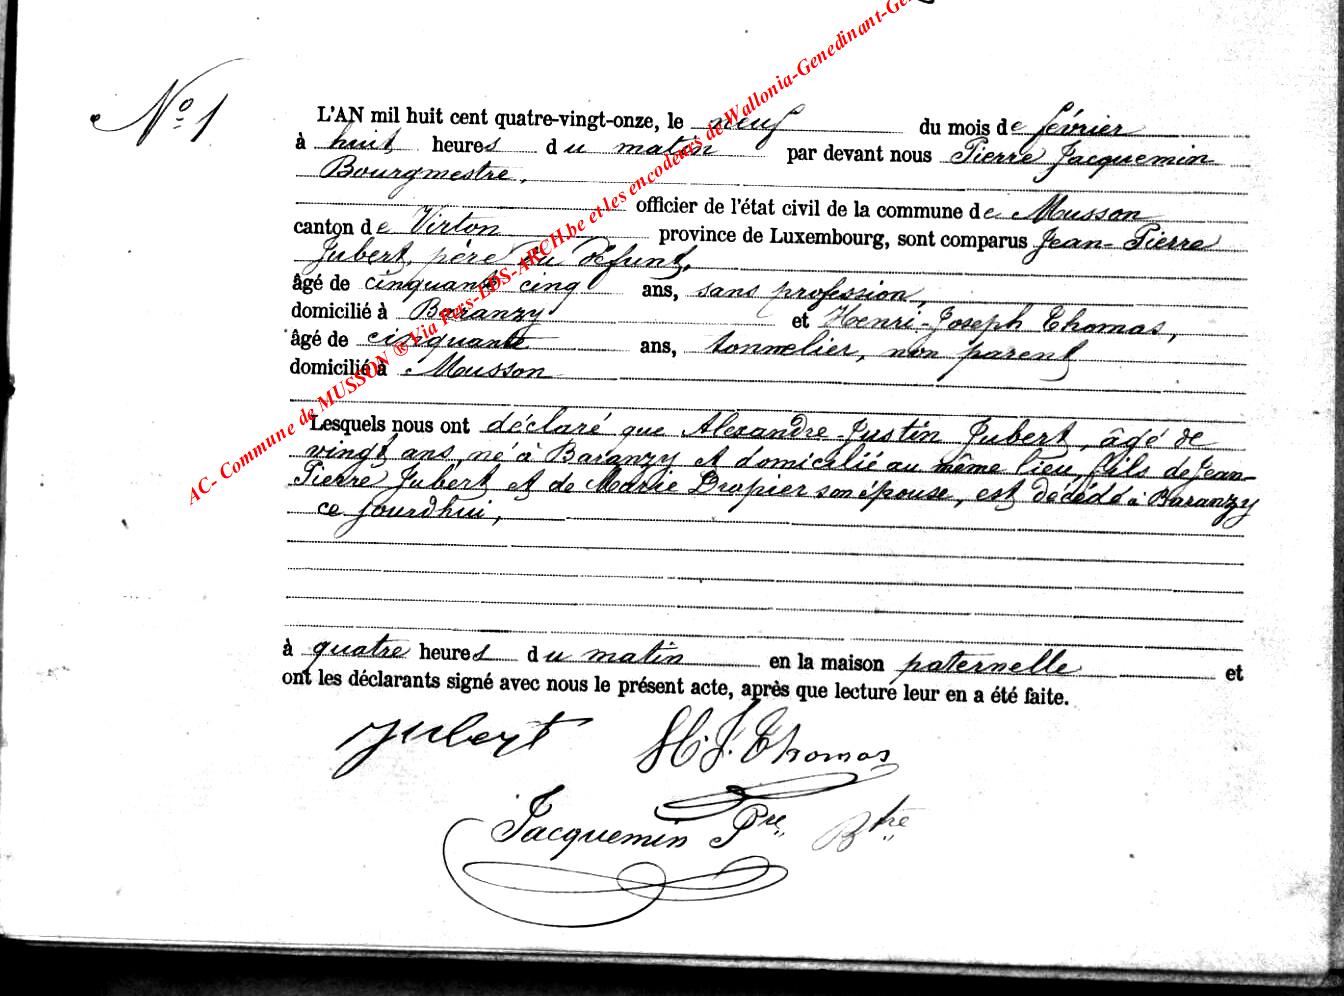 N° 1
L'AN mil huit cent quatre-vingt-onze, le neuf du mois de février
à huit heures du matin par devant nous Pierre Jacquemin
Bourgmestre,
officier de l'état civil de la commune de Musson
canton de Virton province de Luxembourg, sont comparus Jean-Pierre
Jubert, père du défunt,
âgé de cinquante cinq ans, sans profession,
domicilié à Baranzy et Henri-Joseph Thomas,
âgé de cinquante ans, tonnelier, non parent
domicilié à Musson
Lesquels nous ont déclaré que Alexandre Justin Jubert, âgé de
vingt ans, né à Baranzy et domicilié au même lieu, fils de Jean-
Pierre Jubert et de Marie Dropier son épouse, est décédé à Baranzy
ce jourdhui,
à quatre heures du matin en la maison paternelle et
ont les déclarants signé avec nous le présent acte, après que lecture leur en a été faite.
Jubert H. J. Thomas
Jacquemin Pre Btre
AC- Commune de MUSSON ® Via Pers-LDS-ARCH.be et les encodeurs de Wallonia-Genedinant-Ge